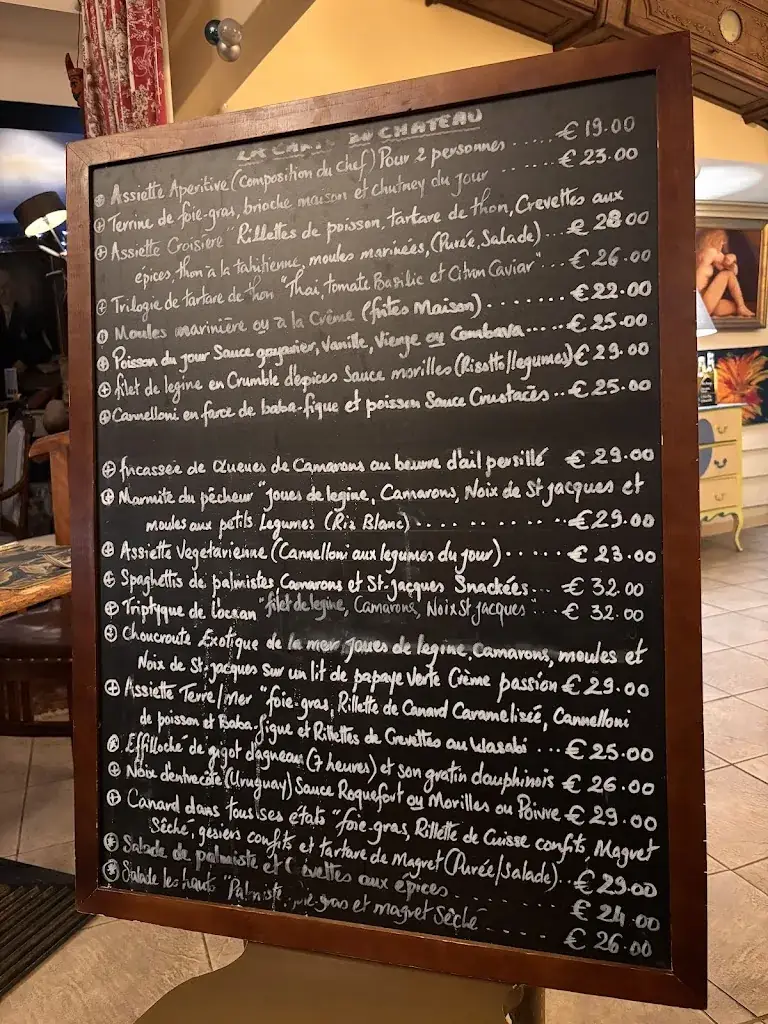 LA CARTE DU CHATEAU
Assiette Aperitive (Composition du chef) Pour 2 personnes ...... € 19.00
Terrine de foie-gras, brioche maison et chutney du jour ...... € 23.00
Assiette Croisière "Rillettes de poisson, tartare de thon, Crevettes aux
épices, thon à la tahitienne, moules marinées, (Purée, Salade) ... € 28.00
Trilogie de tartare de thon "Thaï, tomate Basilic et Citron Caviar" ... € 26.00
Moules marinière ou à la Crème (frites Maison) ........ € 22.00
Poisson du jour Sauce goyavier, Vanille, Vierge ou Combava .... € 25.00
filet de legine en Crumble d'épices Sauce morilles (Risotto/legumes) € 29.00
Cannelloni en farce de baba-figue et poisson Sauce Crustacés .. € 25.00
fricassée de Queues de Camarons au beurre d'ail persillé € 29.00
Marmite du pêcheur "joues de legine, Camarons, Noix de St jacques et
moules aux petits Legumes (Riz Blanc) ........... € 29.00
Assiette Vegetarienne (Cannelloni aux legumes du jour) ...... € 23.00
Spaghettis de palmistes, Camarons et St-Jacques Snackées ... € 32.00
Triptyque de l'ocean "filet de legine, Camarons, Noix St jacques ... € 32.00
Choucroute Exotique de la mer, joues de legine, Camarons, moules et
Noix de St-jacques sur un lit de papaye verte Crème passion € 29.00
Assiette Terre/Mer "foie-gras, Rillette de Canard Caramelisée, Cannelloni
de poisson et Baba-figue et Rillettes de Crevettes au Wasabi ... € 25.00
Effiloché de gigot d'agneau (7 heures) et son gratin dauphinois € 26.00
Noix d'entrecôte (Uruguay) Sauce Roquefort ou Morilles ou Poivre .. € 29.00
Canard dans tous ses états "foie-gras, Rillette de Cuisse confits, Magret
Séché, gesiers confits et tartare de Magret (Purée/Salade) .. € 29.00
Salade de palmiste et Crevettes aux épices ........ € 24.00
Salade les hauts "Palmiste, foie-gras et magret Séché ..... € 26.00